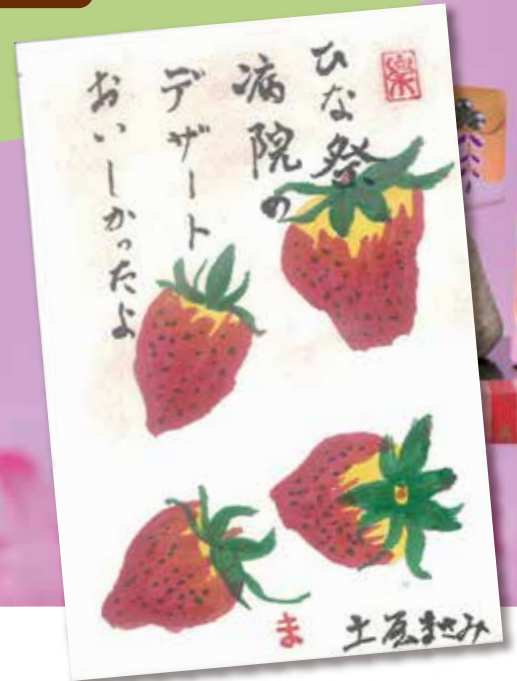 ひな祭
病院の
デザート
おいしかったよ
楽
ま
土屋まさみ